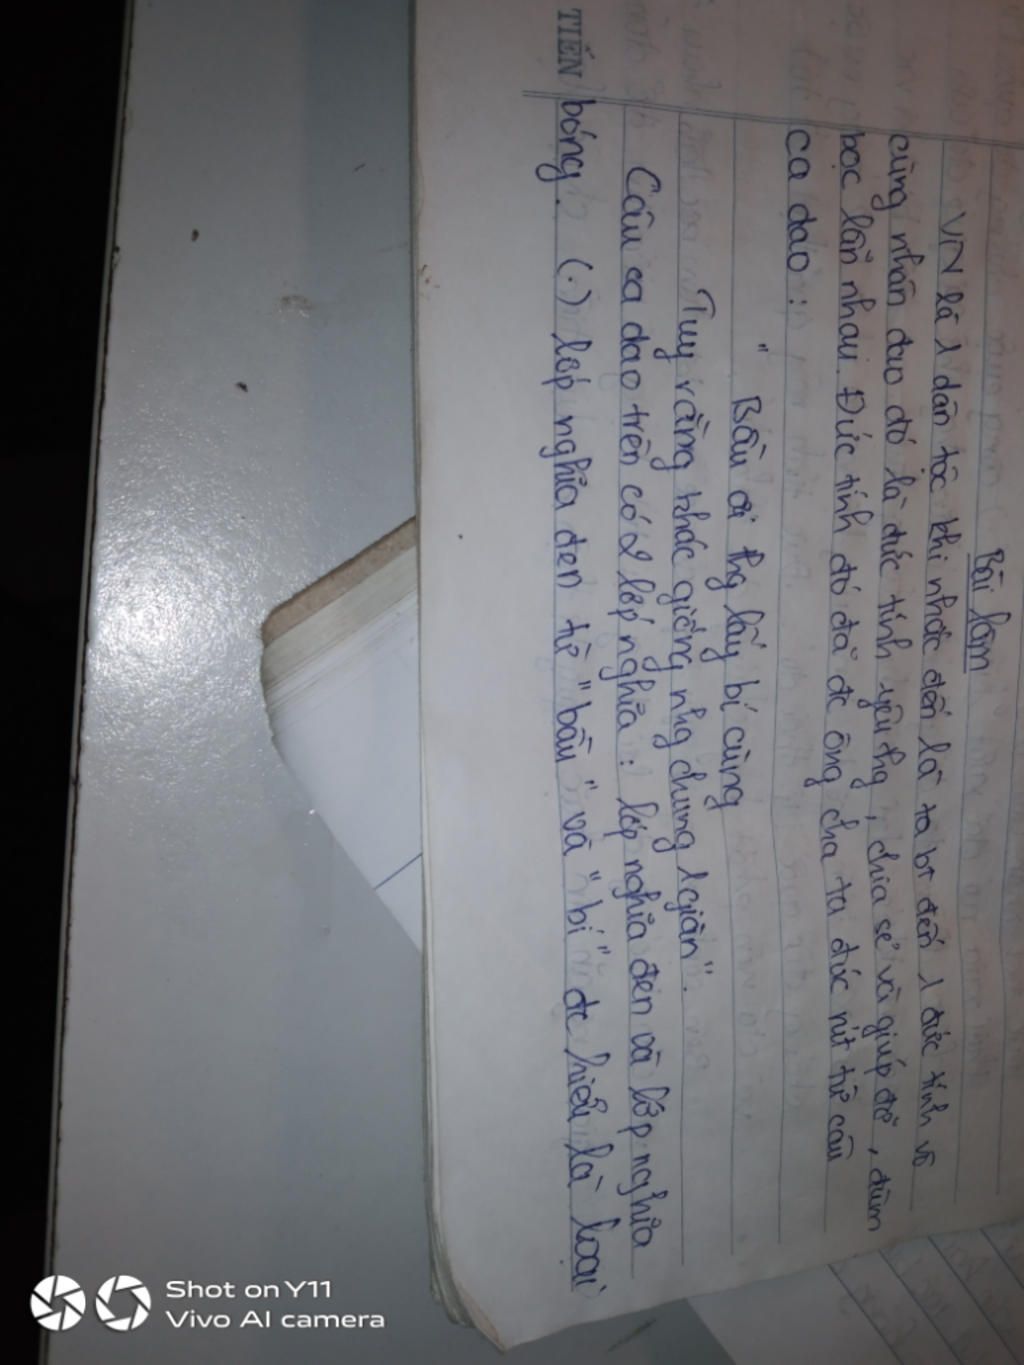 Bài làm
VN là 1 dân tộc khi nhắc đến là ta bt đến 1 đức tính vô
cùng nhân đạo đó là đức tính yêu thg, chia sẻ và giúp đỡ, đùm
bọc lẫn nhau. Đức tính đó đã đc ông cha ta đúc rút từ câu
ca dao:
" Bầu ơi thg lấy bí cùng
Tuy rằng khác giống nhg chung 1 giàn".
Câu ca dao trên có 2 lớp nghĩa: lớp nghĩa đen và lớp nghĩa
bóng. (.) lớp nghĩa đen từ "bầu" và "bí" đc hiểu là loại
TIẾN
Shot on Y11
Vivo AI camera